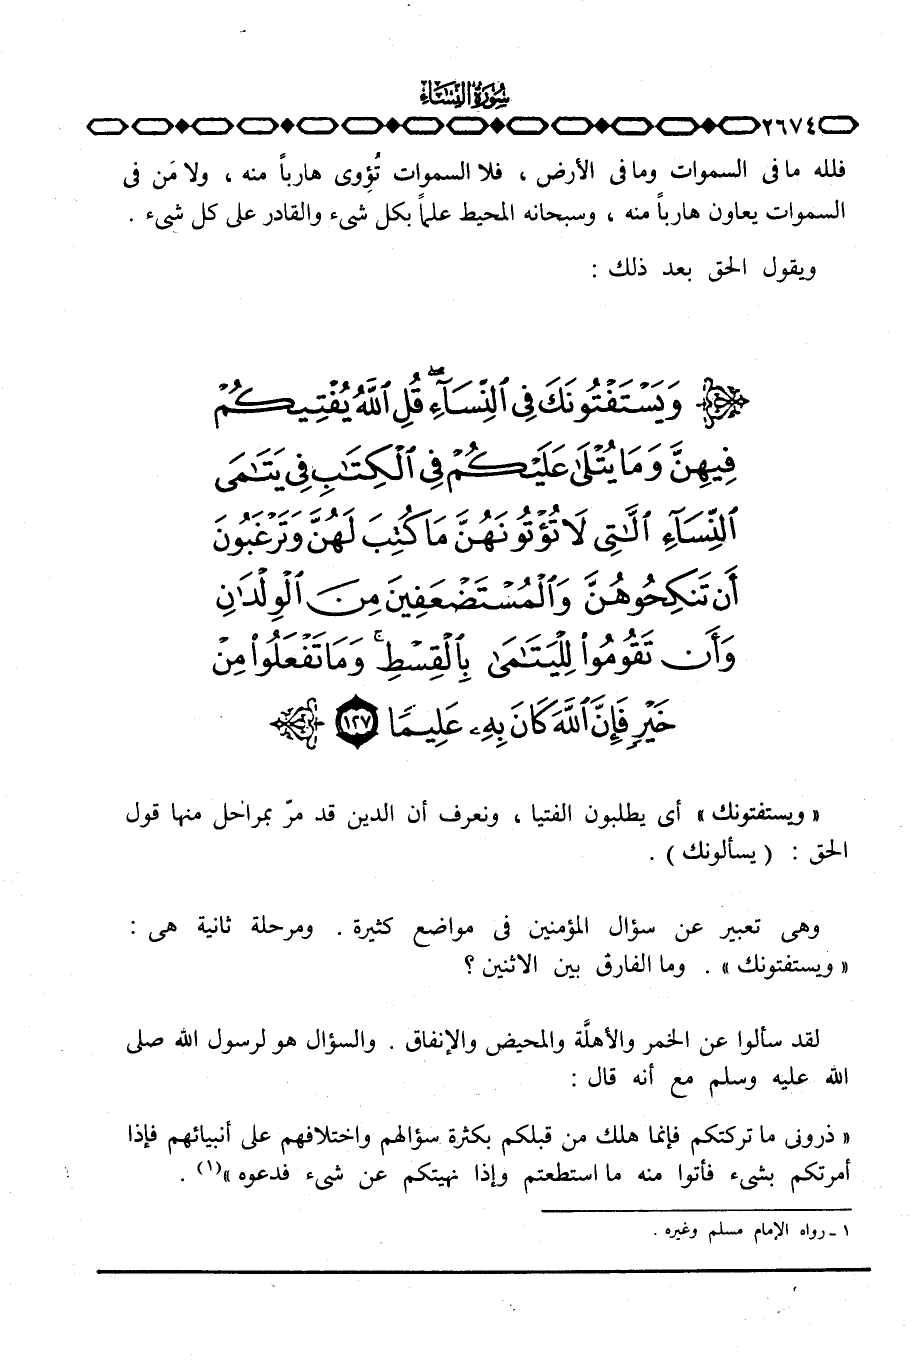 سورة النساء
٢٦٧٤
فلله ما فى السموات وما فى الأرض ، فلا السموات تُؤوى هارباً منه ، ولا مَن فى
السموات يعاون هارباً منه ، وسبحانه المحيط علماً بكل شىء والقادر على كل شىء .
ويقول الحق بعد ذلك :
وَيَسْتَفْتُونَكَ فِى ٱلنِّسَآءِ ۖ قُلِ ٱللَّهُ يُفْتِيكُمْ
فِيهِنَّ وَمَا يُتْلَىٰ عَلَيْكُمْ فِى ٱلْكِتَٰبِ فِى يَتَٰمَى
ٱلنِّسَآءِ ٱلَّٰتِى لَا تُؤْتُونَهُنَّ مَا كُتِبَ لَهُنَّ وَتَرْغَبُونَ
أَن تَنكِحُوهُنَّ وَٱلْمُسْتَضْعَفِينَ مِنَ ٱلْوِلْدَٰنِ
وَأَن تَقُومُوا۟ لِلْيَتَٰمَىٰ بِٱلْقِسْطِ ۚ وَمَا تَفْعَلُوا۟ مِنْ
خَيْرٍ فَإِنَّ ٱللَّهَ كَانَ بِهِۦ عَلِيمًا ١٢٧
« ويستفتونك » أى يطلبون الفتيا ، ونعرف أن الدين قد مرّ بمراحل منها قول
الحق : ( يسألونك ) .
وهى تعبير عن سؤال المؤمنين فى مواضع كثيرة . ومرحلة ثانية هى :
« ويستفتونك » . وما الفارق بين الاثنين ؟
لقد سألوا عن الخمر والأهلَّة والمحيض والإنفاق . والسؤال هو لرسول الله صلى
الله عليه وسلم مع أنه قال :
« ذرونى ما تركتكم فإنما هلك من قبلكم بكثرة سؤالهم واختلافهم على أنبيائهم فإذا
أمرتكم بشىء فأتوا منه ما استطعتم وإذا نهيتكم عن شىء فدعوه »(١) .
١ - رواه الإمام مسلم وغيره .